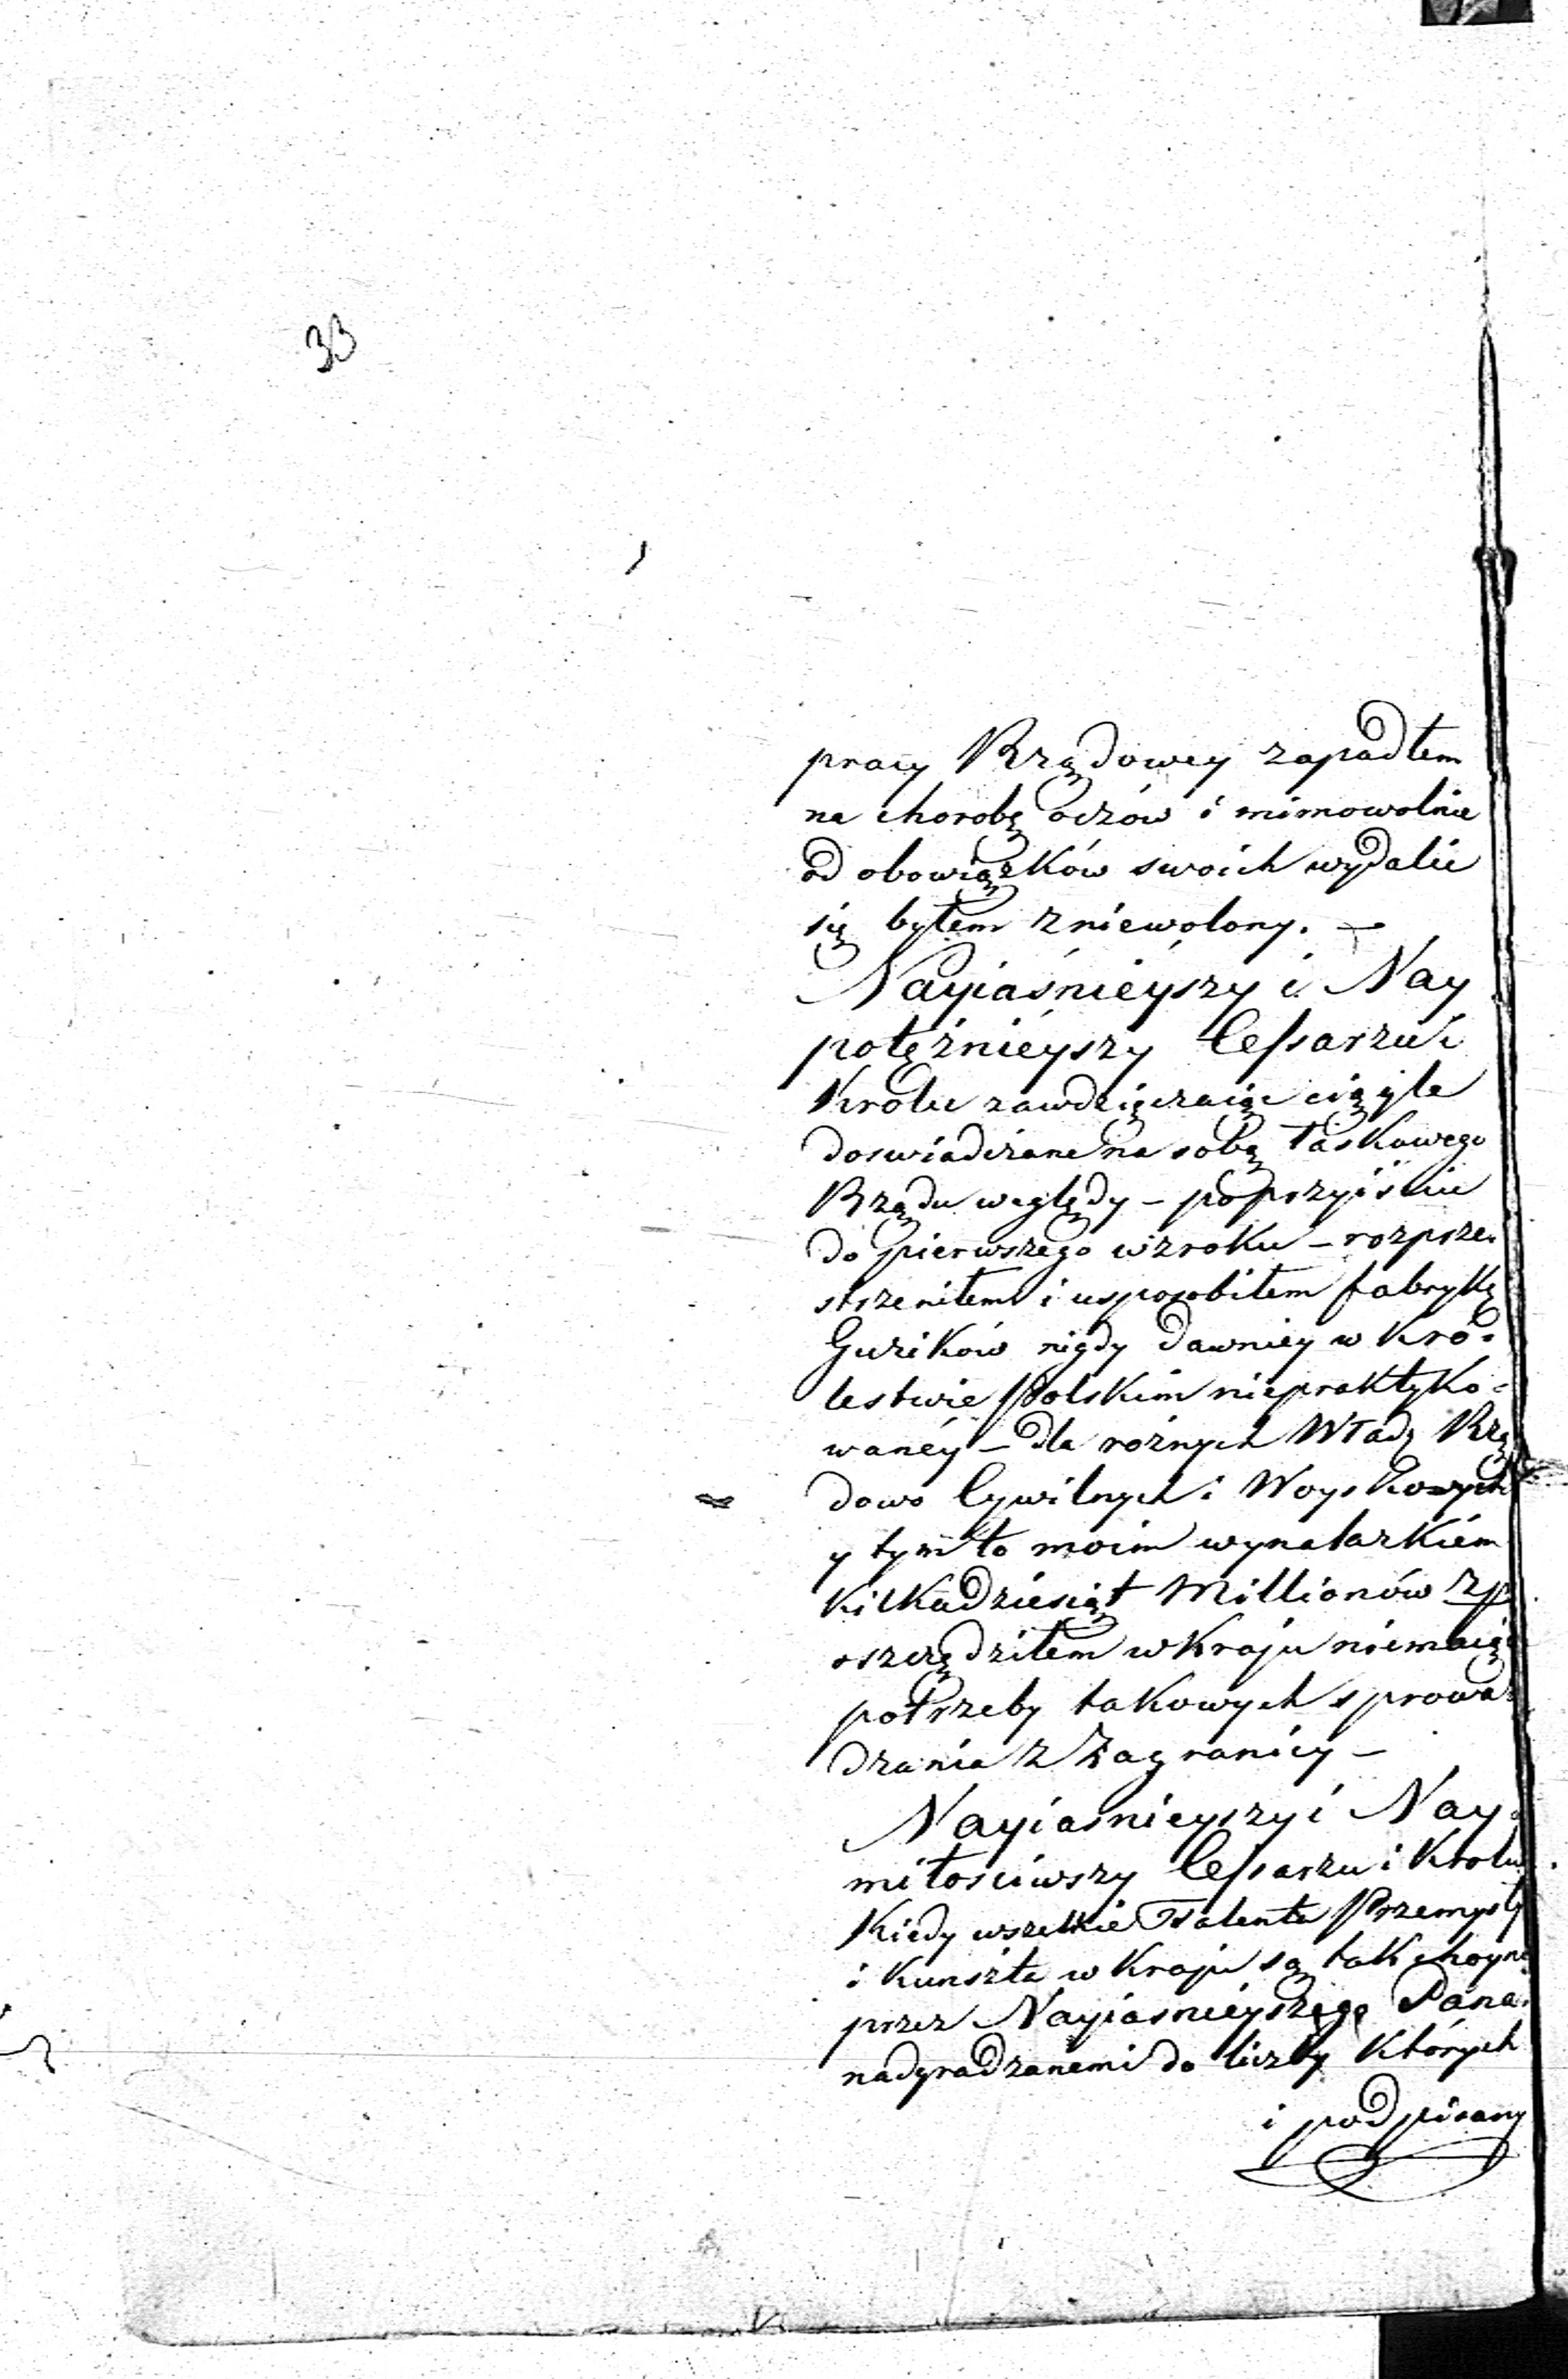 33
pracy Rządowey zapadłem
na chorobę oczów i mimowolnie
od obowiązków swoich wydalić
się byłem zniewolony. —
Nayiaśnieyszy i Nay
potężnieyszy Cessarzu i
Krolu zawdzięczaiąc ciągle
doswiadczane na sobę łaskawego
Rządu względy – po przyiściu
do pierwszego wzroku – rozprze-
strzeniłem i usposobiłem fabrykę
Guzików nigdy dawniey w Kró-
lestwie Polskim niepraktyko-
waney – dla rożnych Władz Rzą
dowo Cywilnych i Woyskowych
y tym to moim wynalazkiem
kilkadziesiąt Millionów zp
oszczędziłem w Kraju niemaiąc
potrzeby takowych sprowa-
dzania z Zagranicy –
Nayiasnieyszy i Nay-
miłosciwszy Cessarzu i Krolu
Kiedy wszelkie Talenta Przemysły
i Kunszta w Kraju są tak hoyne
przez Nayiasnieyszego Pana
nadgradzanemi do liczby których
i podpisany